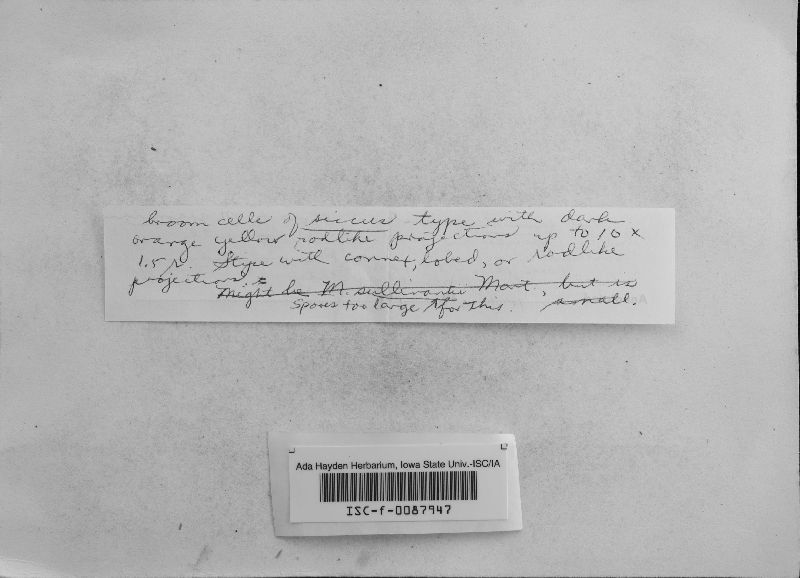 broom cells of siccus type with dark
orange yellow rodlike projections up to 10 x
1.5 µ. Stype with convex, lobed, or rodlike
projections
might be M. sullivantii Mont, but is
spores too large for this. small.
Ada Hayden Herbarium, Iowa State Univ.-ISC/IA
ISC-f-0087947